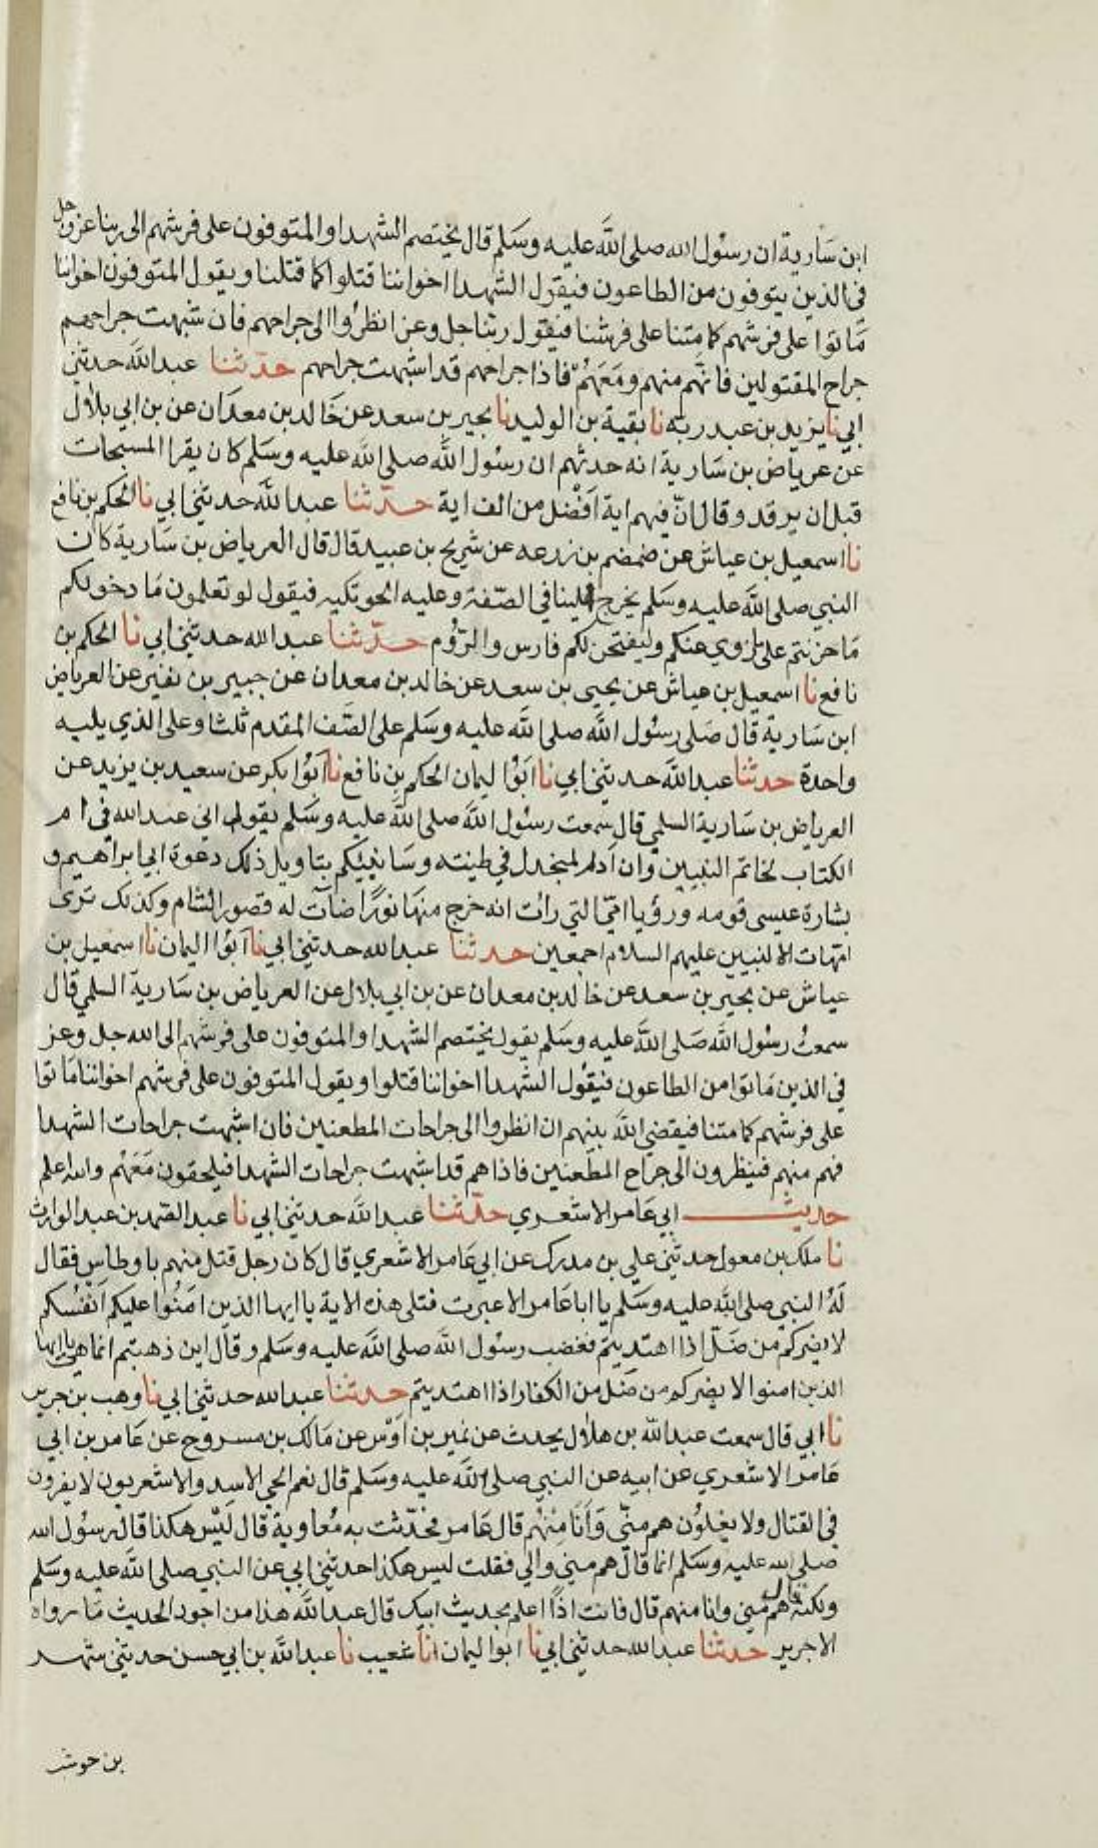 ابن سارية ان رسول الله صلى الله عليه وسلم قال يختصم الشهدا والمتوفون على فرشهم الى ربنا عز وجل
فى الذين يتوفون من الطاعون فيقول الشهدا اخواننا قتلوا كما قتلنا ويقول المتوفون اخواننا
ماتوا على فرشهم كما متنا على فرشنا فيقول ربنا جل وعز انظروا الى جراحهم فان شبهت جراحهم
جراح المقتولين فانهم منهم ومعهم فاذا جراحهم قد اشبهت جراحهم حدثنا عبد الله حدثني
ابي نا يزيد بن عبد ربه نا بقية بن الوليد نا بحير بن سعد عن خالد بن معدان عن بن ابي بلال
عن عرياض بن سارية انه حدثهم ان رسول الله صلى الله عليه وسلم كان يقرا المسبحات
قبل ان يرقد وقال ان فيهم اية افضل من الف اية حدثنا عبد الله حدثني ابي نا الحكم بن نافع
نا اسمعيل بن عياش عن ضمضم بن زرعه عن شريح بن عبيد قال قال العرياض بن سارية كان
النبي صلى الله عليه وسلم يخرج الينا في الصفة وعليه الحوتكيه فيقول لو تعلمون ما دخر لكم
ما حزنتم على ما زوي عنكم وليفتحن لكم فارس والروم حدثنا عبد الله حدثني ابي نا الحكم بن
نافع نا اسمعيل بن عياش عن يحيى بن سعد عن خالد بن معدان عن جبير بن نفير عن العرياض
ابن سارية قال صلى رسول الله صلى الله عليه وسلم على الصف المقدم ثلثا وعلى الذي يليه
واحدة حدثنا عبد الله حدثني ابي نا ابوا ليمان الحكم بن نافع نا ابوا بكر عن سعيد بن يزيد عن
العرياض بن سارية السلمي قال سمعت رسول الله صلى الله عليه وسلم يقول اني عند الله فى ام
الكتاب لخاتم النبيين وان ادم لمنجدل في طينته وسانبيكم بتاويل ذلك دعوة ابي ابراهيم و
بشارة عيسى قومه ورؤيا امي التي رات انه خرج منها نورا ضات له قصور الشام وكذلك ترى
امهات النبيين عليهم السلام اجمعين حدثنا عبد الله حدثني ابي نا ابوا اليمان نا اسمعيل بن
عياش عن بحير بن سعد عن خالد بن معدان عن بن ابي بلال عن العرياض بن سارية السلمي قال
سمعت رسول الله صلى الله عليه وسلم يقول يختصم الشهدا والمتوفون على فرشهم الى الله جل وعز
في الذين ماتوا من الطاعون فيقول الشهدا اخواننا قتلوا ويقول المتوفون على فرشهم اخواننا ماتوا
على فرشهم كما متنا فيقضي الله بينهم ان انظروا الى جراحات المطعنين فان اشبهت جراحات الشهدا
فهم منهم فينظرون الى جراح المطعنين فاذا هم قد اشبهت جراحات الشهدا فيلحقون معهم والله اعلم
حديث ابي عامر الاشعري حدثنا عبد الله حدثني ابي نا عبد الصمد بن عبد الوارث
نا ملك بن معول حدثني علي بن مدرك عن ابي عامر الاشعري قال كان رجل قتل منهم باوطاس فقال
له النبي صلى الله عليه وسلم يا ابا عامر الا عبرت فتلى هذه الاية يا ايها الذين امنوا عليكم انفسكم
لا يضركم من ضل اذا اهتديتم فغضب رسول الله صلى الله عليه وسلم وقال اين ذهبتم انما هي يا ايها
الذين امنوا لا يضركم من ضل من الكفار اذا اهتديتم حدثنا عبد الله حدثني ابي نا وهب بن جرير
نا ابي قال سمعت عبد الله بن هلاول يحدث عن نمير بن اوس عن مالك بن مسروح عن عامر بن ابي
عامر الاشعري عن ابيه عن النبي صلى الله عليه وسلم قال نعم الحي الاسد والاشعريون لا يفرون
في القتال ولا يغلون هم مني وانا منهم قال عامر فحدثت به معاوية قال ليس هكذا قال رسول الله
صلى الله عليه وسلم انما قال هم مني والي فقلت ليس هكذا حدثني ابي عن النبي صلى الله عليه وسلم
ولكنه قال هم مني وانا منهم قال فانت اذا اعلم بحديث ابيك قال عبد الله هذا من اجود الحديث ما رواه
الا جرير حدثنا عبد الله حدثني ابي نا ابوا ليمان انا شعيب نا عبد الله بن ابي حسن حدثني شهر
بن حوشب